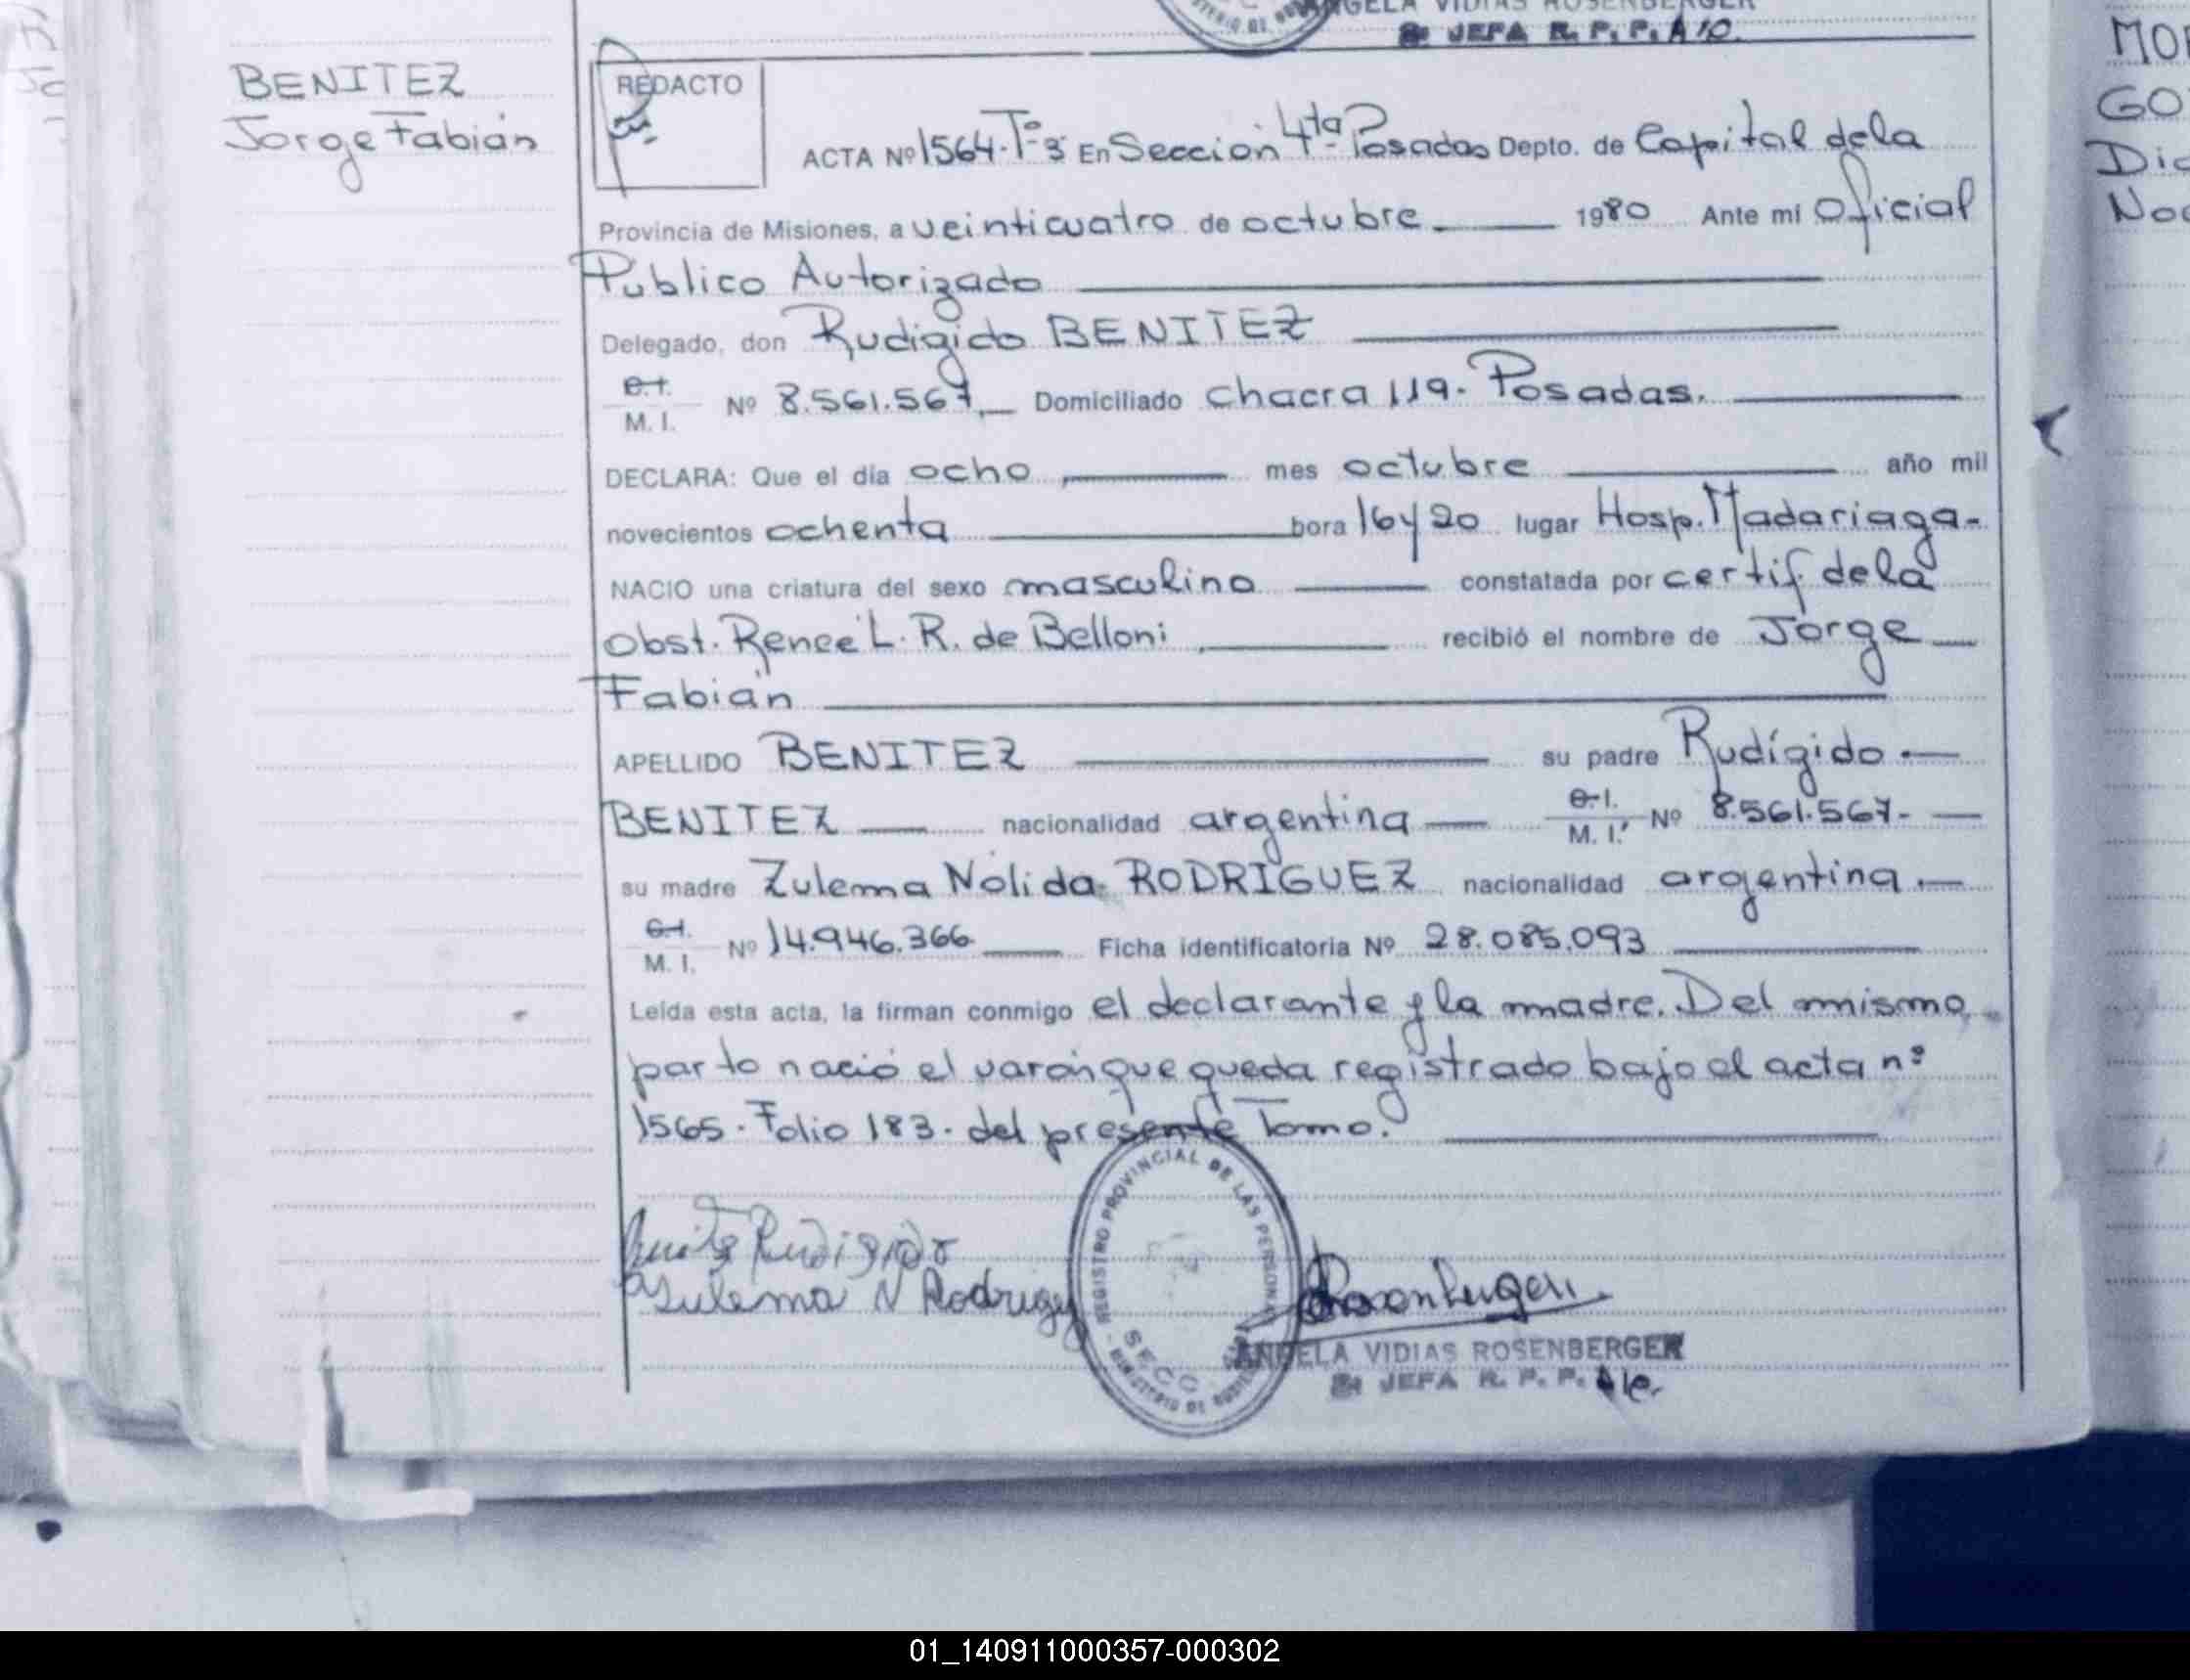 ANGELA VIDIAS ROSENBERGER
JEFA R. P. P. A/c.
BENITEZ
Jorge Fabián
REDACTO
ACTA Nº 1564. Tº 3 En Sección 4ta Posadas Depto. de Capital de la
Provincia de Misiones, a veinticuatro de octubre 1980 Ante mí Oficial
Público Autorizado
Delegado, don Rudigido BENITEZ
C.I.
M. I. Nº 8.561.567. Domiciliado chacra 119. Posadas.
DECLARA: Que el día ocho mes octubre año mil
novecientos ochenta hora 16 y 20 lugar Hosp. Madariaga-
NACIO una criatura del sexo masculino constatada por certif. de la
Obst. Renee L. R. de Belloni recibió el nombre de Jorge
Fabián
APELLIDO BENITEZ su padre Rudígido
BENITEZ nacionalidad argentina C.I. M. I. Nº 8.561.567-
su madre Zulema Nólida RODRIGUEZ nacionalidad argentina.
C.I.
M. I. Nº 14.946.366 Ficha identificatoria Nº 28.085.093
Leída esta acta, la firman conmigo el declarante y la madre. Del mismo
parto nació el varón que queda registrado bajo el acta nº
1565. Folio 183. del presente Tomo.
REGISTRO PROVINCIAL DE LAS PERSONAS
SECC
MINISTERIO DE
Benitez Rudigido
Zulema N Rodriguez
Rosenberger
ANGELA VIDIAS ROSENBERGER
JEFA R. P. P. A/c.
MO
GO
Dic
No
01_140911000357-000302